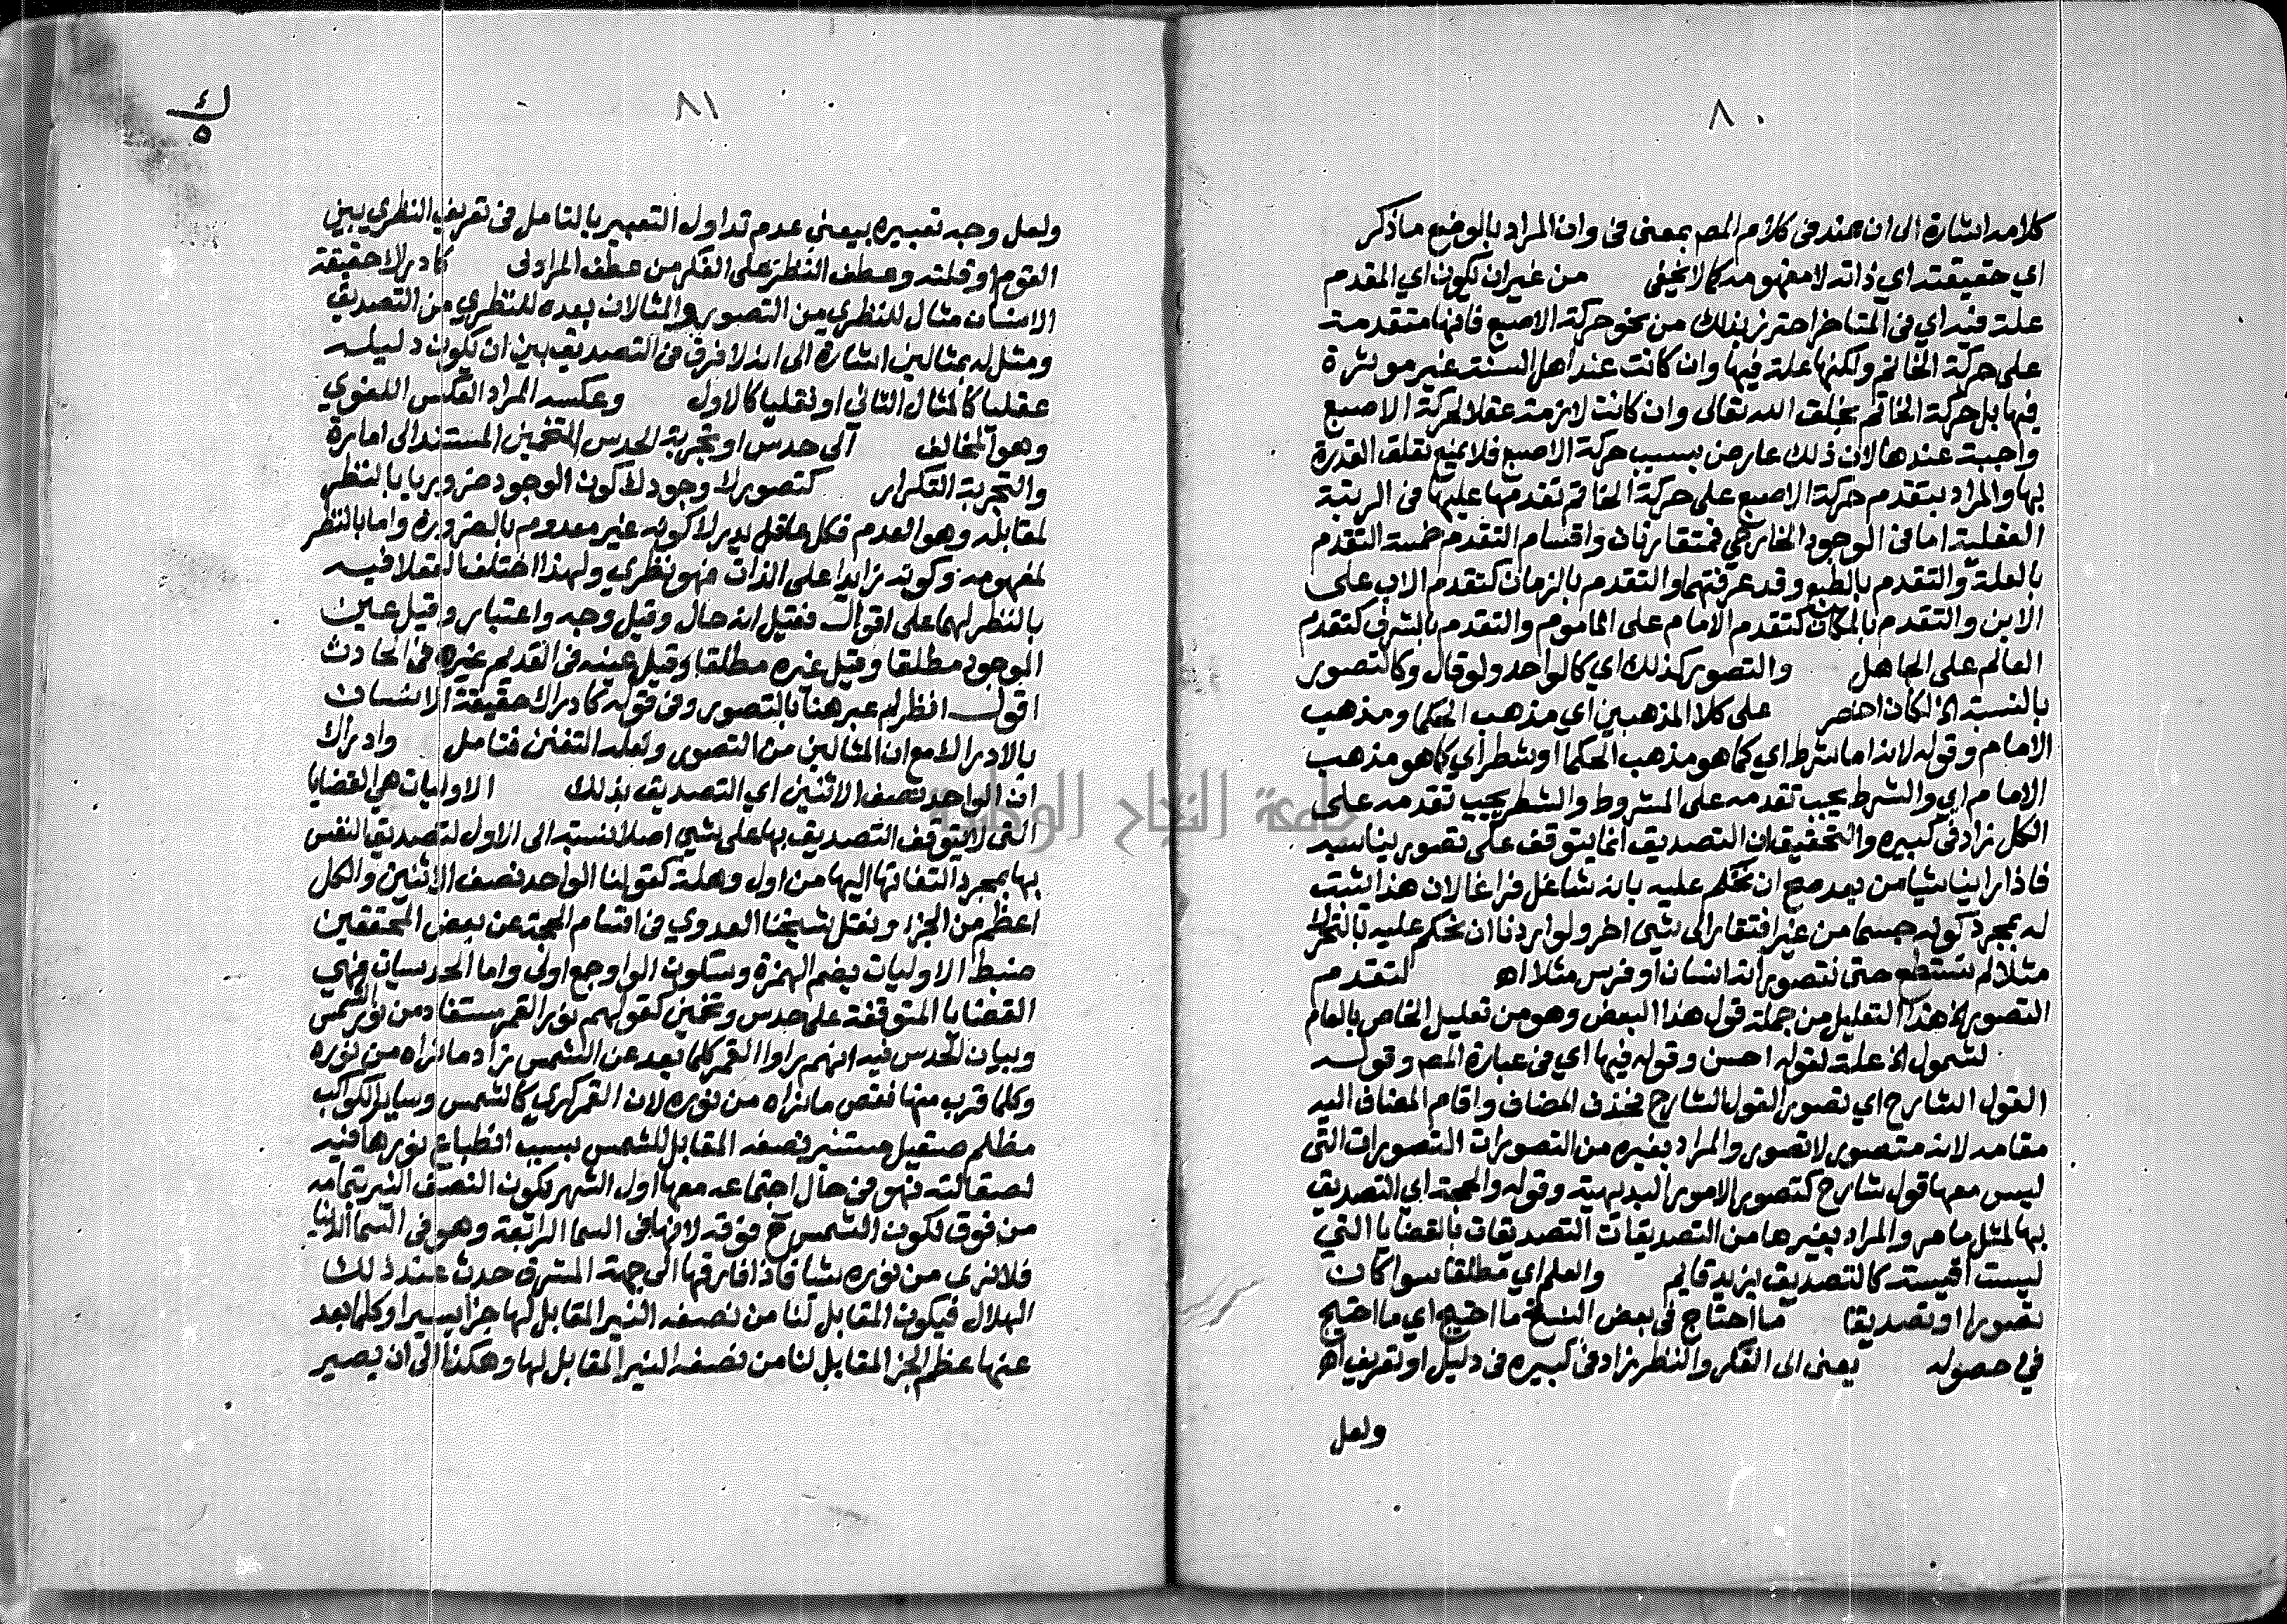 ٨٠
كلامه اشارة الى ان عند فى كلام المص بمعنى فى وان المراد بالوضع ما ذكر
اي حقيقته اي ذاته لا مفهومه كما لا يخفى من غير ان يكون اي المقدم
علة فيه اي فى المتاخر احترز بذلك من نحو حركة الاصبع فانها متقدمة
على حركة الخاتم ولكنها علة فيها وان كانت عند اهل السنة غير موثرة
فيها بل حركة الخاتم بخلق الله تعالى وان كانت لازمة عقلا لحركة الاصبع
واجبة عندها لان ذلك عارض بسبب حركة الاصبع فلا يمنع تعلق القدرة
بها والمراد بتقدم حركة الاصبع على حركة الخاتم تقدمها عليها فى الرتبة
العقلية اما فى الوجود الخارجي فمتقارنان واقسام التقدم خمسة التقدم
بالعلة والتقدم بالطبع وقد عرفتهما والتقدم بالزمان كتقدم الاب على
الابن والتقدم بالمكان كتقدم الامام على الماموم والتقدم بالشرف كتقدم
العالم على الجاهل والتصور كذلك اي كالواحد ولو قال وكالتصور
بالنسبة الخ لكان اخصر على كلا المذهبين اي مذهب الحكما ومذهب
الامام وقوله لانه اما شرط اي كما هو مذهب الحكما او شطر اي كما هو مذهب
الامام اي والشرط يجب تقدمه على المشروط والشطر يجب تقدمه على
الكل زاد فى كبيره والتحقيق ان التصديق انما يتوقف على تصور يناسبه
فاذا راينا شيا من بعد صح ان نحكم عليه بانه شاغل فراغا لان هذا يثبت
له بمجرد كونه جسما من غير افتقار الى شي اخر ولو اردنا ان نحكم عليه بالتحرك
مثلا لم نستطع حتى نتصور انه انسان او فرس مثلا اه لتقدم
التصور الخ هذا التعليل من جملة قول هذا البعض وهو من تعليل الخاص بالعام
لشمول الخ علة لقوله احسن وقوله فيها اي فى عبارة المص وقوله
القول الشارح اي تصور القول الشارح فحذف المضاف واقام المضاف اليه
مقامه لانه متصور لا تصور والمراد بغيره من التصورات التصورات التى
ليس معها قول شارح كتصور الامور البديهية وقوله والحجة اي التصديق
بها لمثل ما مر والمراد بغيرها من التصديقات التصديقات بالقضايا التي
ليست اقيسة كالتصديق بزيد قايم والعلم اي مطلقا سوا كان
تصورا او تصديقا ما احتاج فى بعض النسخ ما احتيج اي ما احتيج
في حصوله يعنى الى الفكر والنظر زاد فى كبيره فى دليل او تعريف اه
ولعل
٨١
ولعل وجه تعبيره بيعنى عدم تداول التعبير بالتامل فى تعريف النظري بين
القوم او قلته وعطف النظر على الفكر من عطف المرادف كادراك حقيقة
الانسان مثال للنظري من التصور والمثالان بعده للنظري من التصديق
ومثل له بمثالين اشارة الى انه لا فرق فى التصديق بين ان يكون دليله
عقليا كالمثال الثاني او نقليا كالاول وعكسه المراد العكس اللغوي
وهو المخالف الى حدس او تجربة الحدس التخمين المستند الى امارة
والتجربة التكرار كتصورك وجودك كون الوجود ضروريا بالنظر
لمقابله وهو العدم فكل عاقل يدرك كونه غير معدوم بالضرورة واما بالنظر
لمفهومه وكونه زايدا على الذات فهو نظري ولهذا اختلف العقلا فيه
بالنظر لهما على اقوال فقيل انه حال وقيل وجه واعتبار وقيل عين
الموجود مطلقا وقيل غيره مطلقا وقيل عينه فى القديم غيره فى الحادث
اقول انظر لم عبر هنا بالتصور وفى قوله كادراك حقيقة الانسان
بالادراك مع ان المثالين من التصور ولعله التفنن فتامل وادراك
ان الواحد نصف الاثنين اي التصديق بذلك الاوليات هى القضايا
التى لا يتوقف التصديق بها على شي اصلا نسبة الى الاول لتصديق النفس
بها بمجرد التفاتها اليها من اول وهلة كقولنا الواحد نصف الاثنين والكل
اعظم من الجزء ونقل شيخنا العدوي فى اقسام الحجة عن بعض المحققين
ضبط الاوليات بضم الهمزة وسكون الواو جمع اولى واما الحدسيات فهي
القضايا المتوقفة على حدس وتخمين كقولهم نور القمر مستفاد من نور الشمس
وبيان الحدس فيه انهم راوا القمر كلما بعد عن الشمس زاد ما نراه من نوره
وكلما قرب منها نقص ما نراه من نوره لان القمر كري كالشمس وساير الكواكب
مظلم صقيل مستنير نصفه المقابل للشمس بسبب انطباع نورها فيه
لصقالته فهو فى حال اجتماعه معها اول الشهر يكون النصف النير بتمامه
من فوق لكون الشمس ح فوقه لانها فى السما الرابعة وهو فى السما الدنيا
فلا نرى من نوره شيا فاذا فارقها الى جهة المشرق حدث عند ذلك
الهلال فيكون المقابل لنا من نصفه النير المقابل لها جزا يسيرا وكلما بعد
عنها عظم الجز المقابل لنا من نصفه النير المقابل لها وهكذا الى ان يصير
جامعة النجاح الوطنية